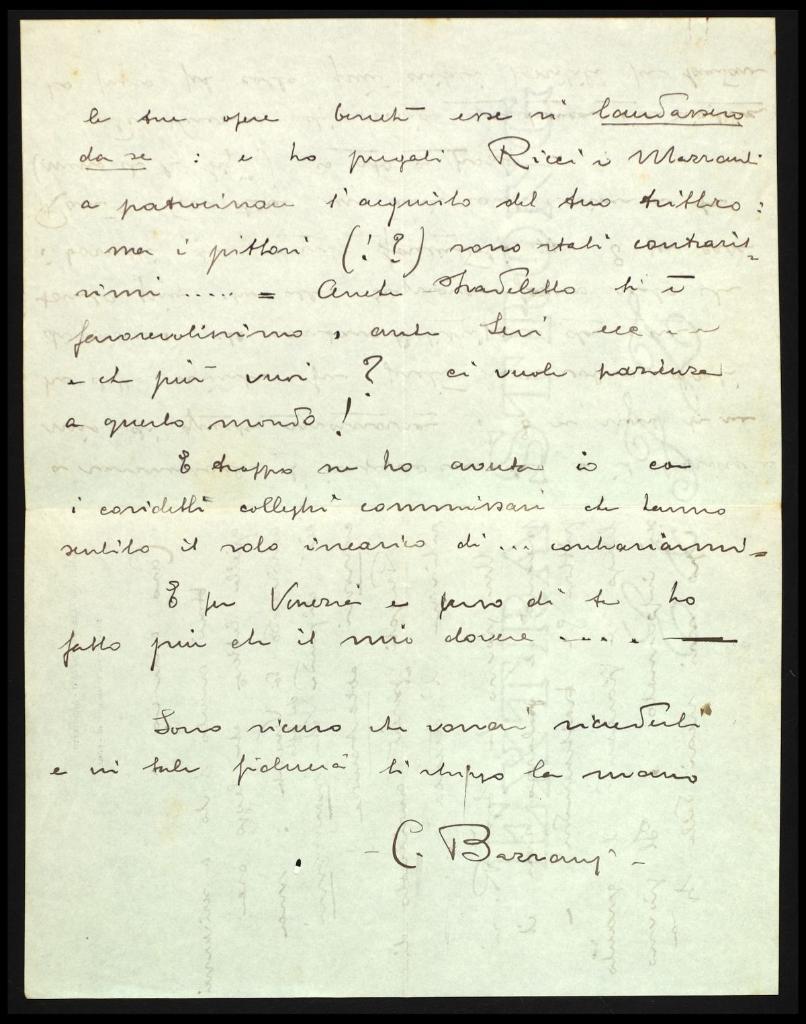 le tue opere benchè esse si laudassero
da se : e ho pregati Ricci e Mazzanti
a patrocinare l'acquisto del tuo trittico :
ma i pittori (!?) sono stati contraris=
simi ..... = Anche Fradeletto ti è
favorevolissimo, anche Sezi ecc ...
e che più vuoi ? ci vuole pazienza
a questo mondo !
E troppa ne ho avuta io con
i cosidetti colleghi commissari che hanno
sentito il solo incarico di ... contrariarmi =
E per Venezia e verso di te ho
fatto più che il mio dovere .... —
Sono sicuro che vorrai ricrederti
e in tale fiducia ti stringo la mano
- C. Bazzani -